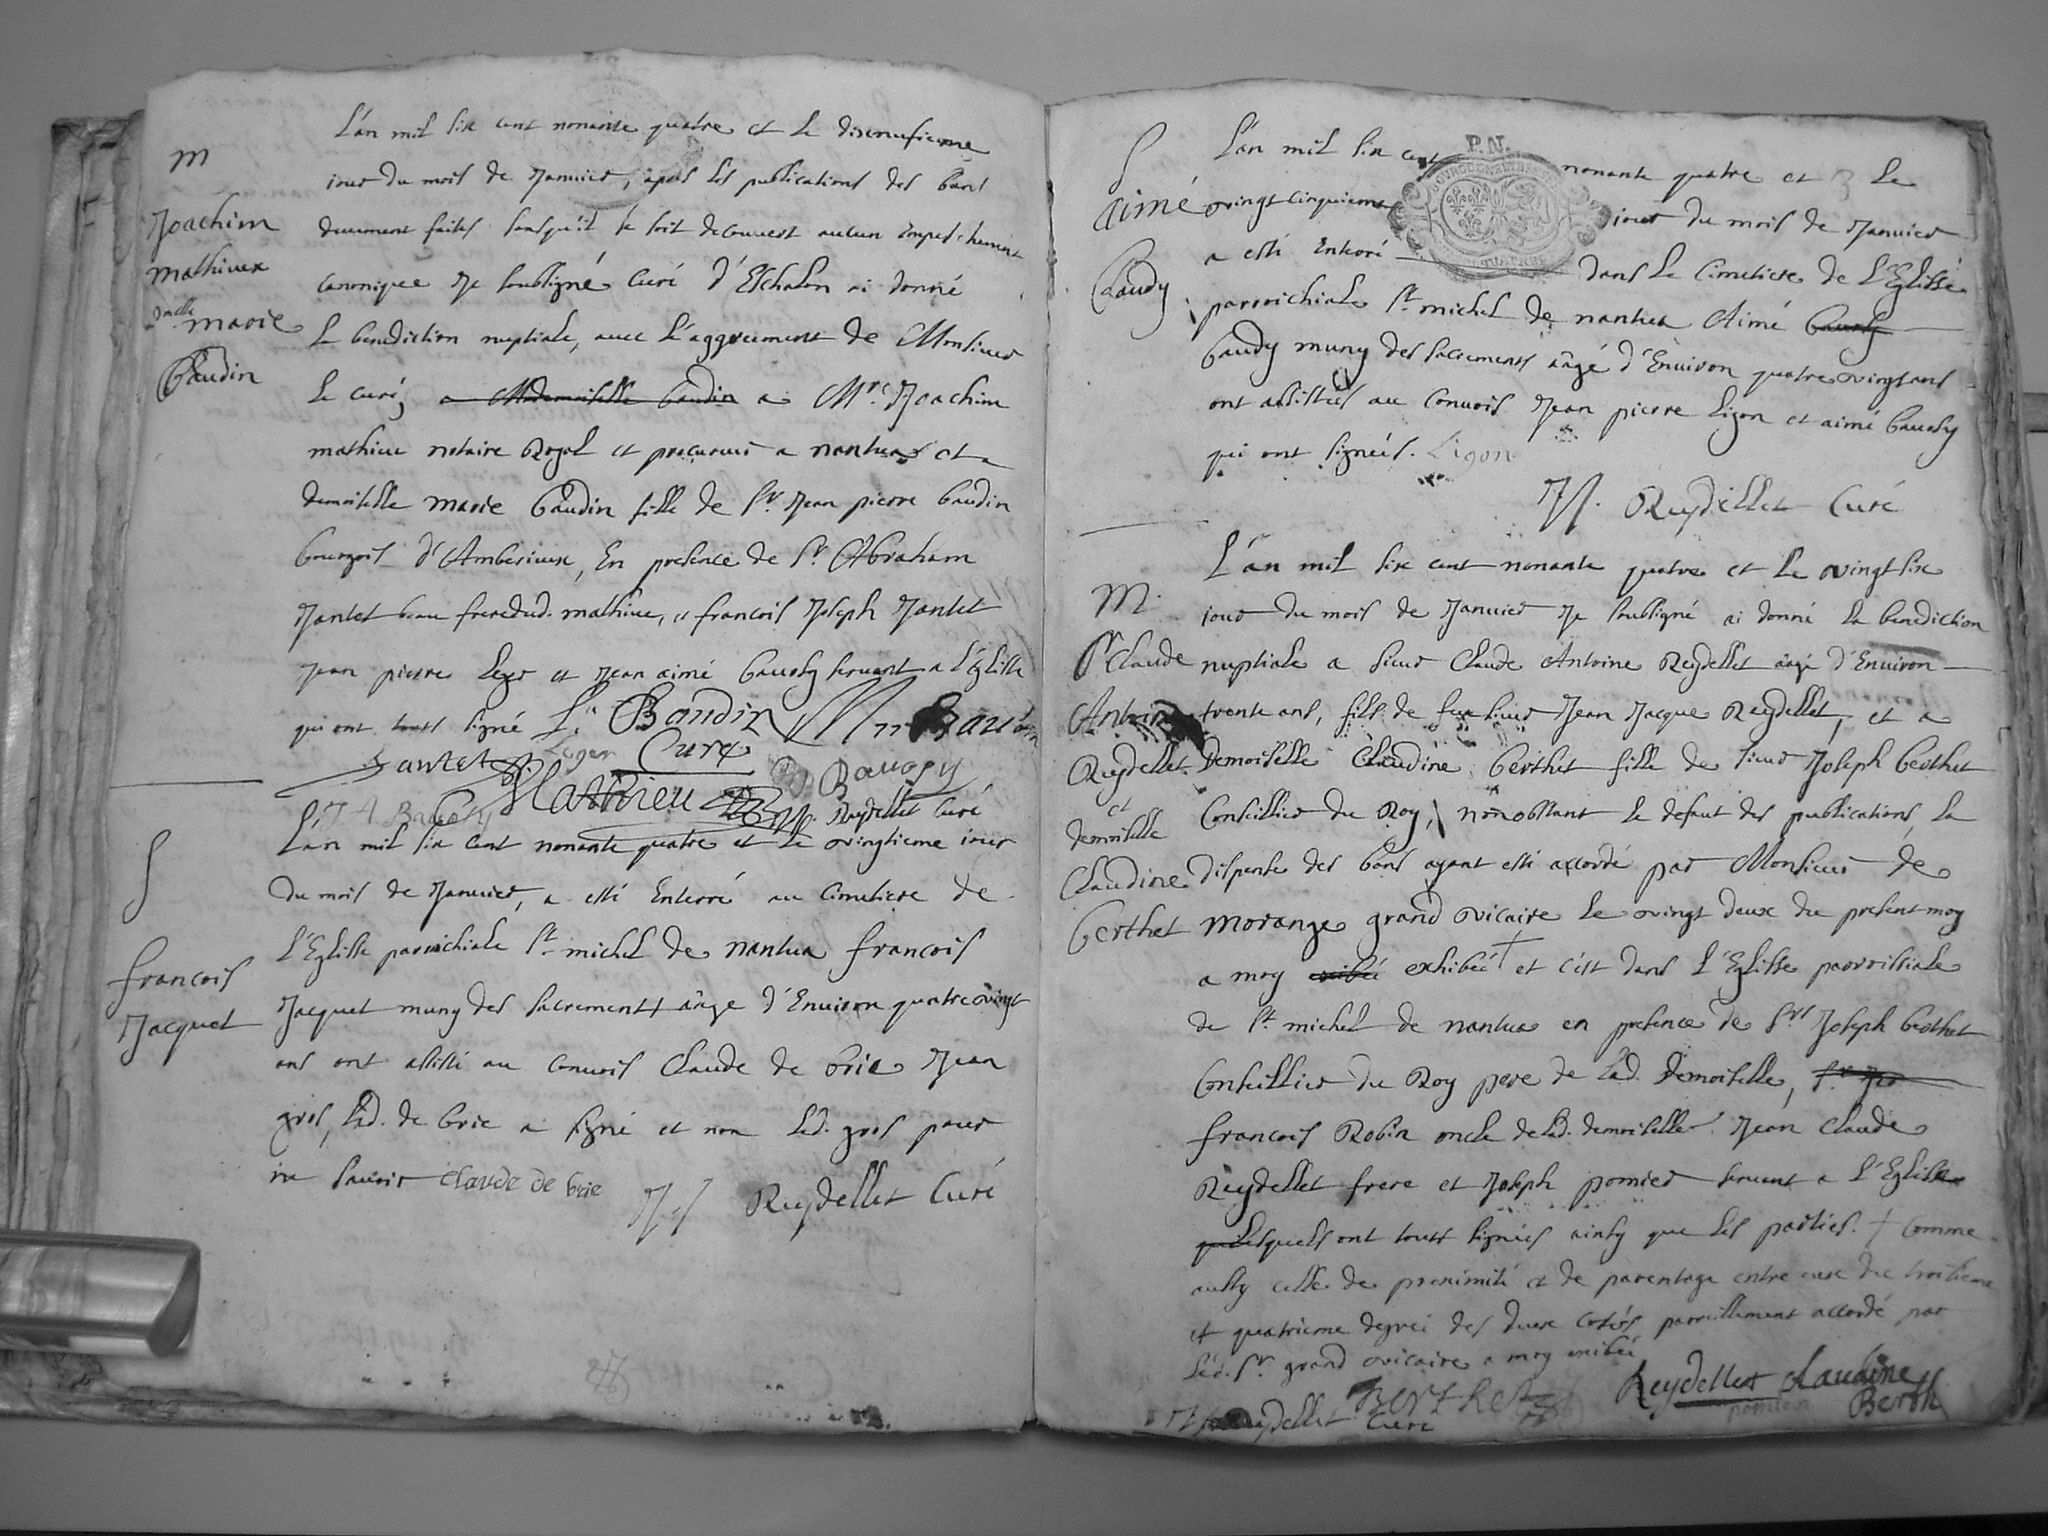 m
Joachim
mathieux
dmelle
marie
Baudin
L'an mil six cent nonante quatre et le disneufieme
jour du mois de Janvier, apres les publications des bans
deument faites sans qu'il se soit decouvert aucun empeschement
canonique Je soubsigné Curé d'Eschalon ai donné
la benediction nuptiale, avec l'aggreement de Monsieur
le curé, a Mademoiselle Baudin a Mre Joachim
mathieu notaire Royal et procureur a nantua et a
demoiselle marie Baudin fille de Sr Jean pierre Baudin
bourgois d'Amberieux, En presence de Sr Abraham
Jantet beau frere dud. mathieu, et francois Joseph Jantet
Jean pierre Leger et Jean aimé Baudy servant a l'Eglisse
qui ont touts signé
Baudin
Curé
Jantet
Leger
Mathieu
Reydellet Curé
S
francois
Jacquet
L'an mil six cent nonante quatre et le vingtieme jour
du mois de Janvier, a esté Enterré au Cimetiere de
l'Eglisse parroichiale St michel de nantua francois
Jacquet muny des sacrements âagé d'Environ quatre vingt
ans ont assisté au Convois Claude de brie Jean
gros, led. de brie a signé et non led. gros pour
ne savoir Claude de brie
Reydellet Curé
S
Aimé
Baudy
P.N.
L'an mil six cent nonante quatre et le
vingt cinquieme jour du mois de Janvier
a esté Enterré dans le Cimetiere de l'Eglisse
parroichiale St michel de nantua Aimé Baudy
Baudy muny des sacrements âagé d'Environ quatre vingt ans
ont assistés au Convois Jean pierre Ligon et aimé Baudy
qui ont signés. Ligon
Reydellet Curé
M.
Sr Claude
Antoine
Reydellet
et
demoiselle
Claudine
Berthet
L'an mil six cent nonante quatre et le vingt six
jour du mois de Janvier Je soubsigné ai donné la benediction
nuptiale a sieur Claude Antoine Reydellet âagé d'Environ
trente ans, fils de feu sieur Jean Jacque Reydellet, et a
Demoiselle Claudine Berthet fille de sieur Joseph Berthet
Conseillier du Roy, nonobstant le defaut des publications, la
dispense des bans ayant esté accordé par Monsieur de
morange grand vicaire le vingt deux du present moy
a moy exhibée + et c'est dans l'Eglisse parroissiale
de St michel de nantua en presence de Srs Joseph Berthet
Conseillier du Roy pere de lad. Demoiselle,
francois Robin oncle de lad. demoiselle Jean Claude
Reydellet frere et Joseph pomier servent a l'Eglisse
lesquels ont touts signés ainsy que les parties. + Comme
aussy celle de proximité et de parentage entre eux du troisieme
et quatrieme degréi des deux costés pareillement accordé par
led. Sr grand vicaire a moy exibée
Reydellet Curé
Berthet
Reydellet
Claudine
Berth
pomier